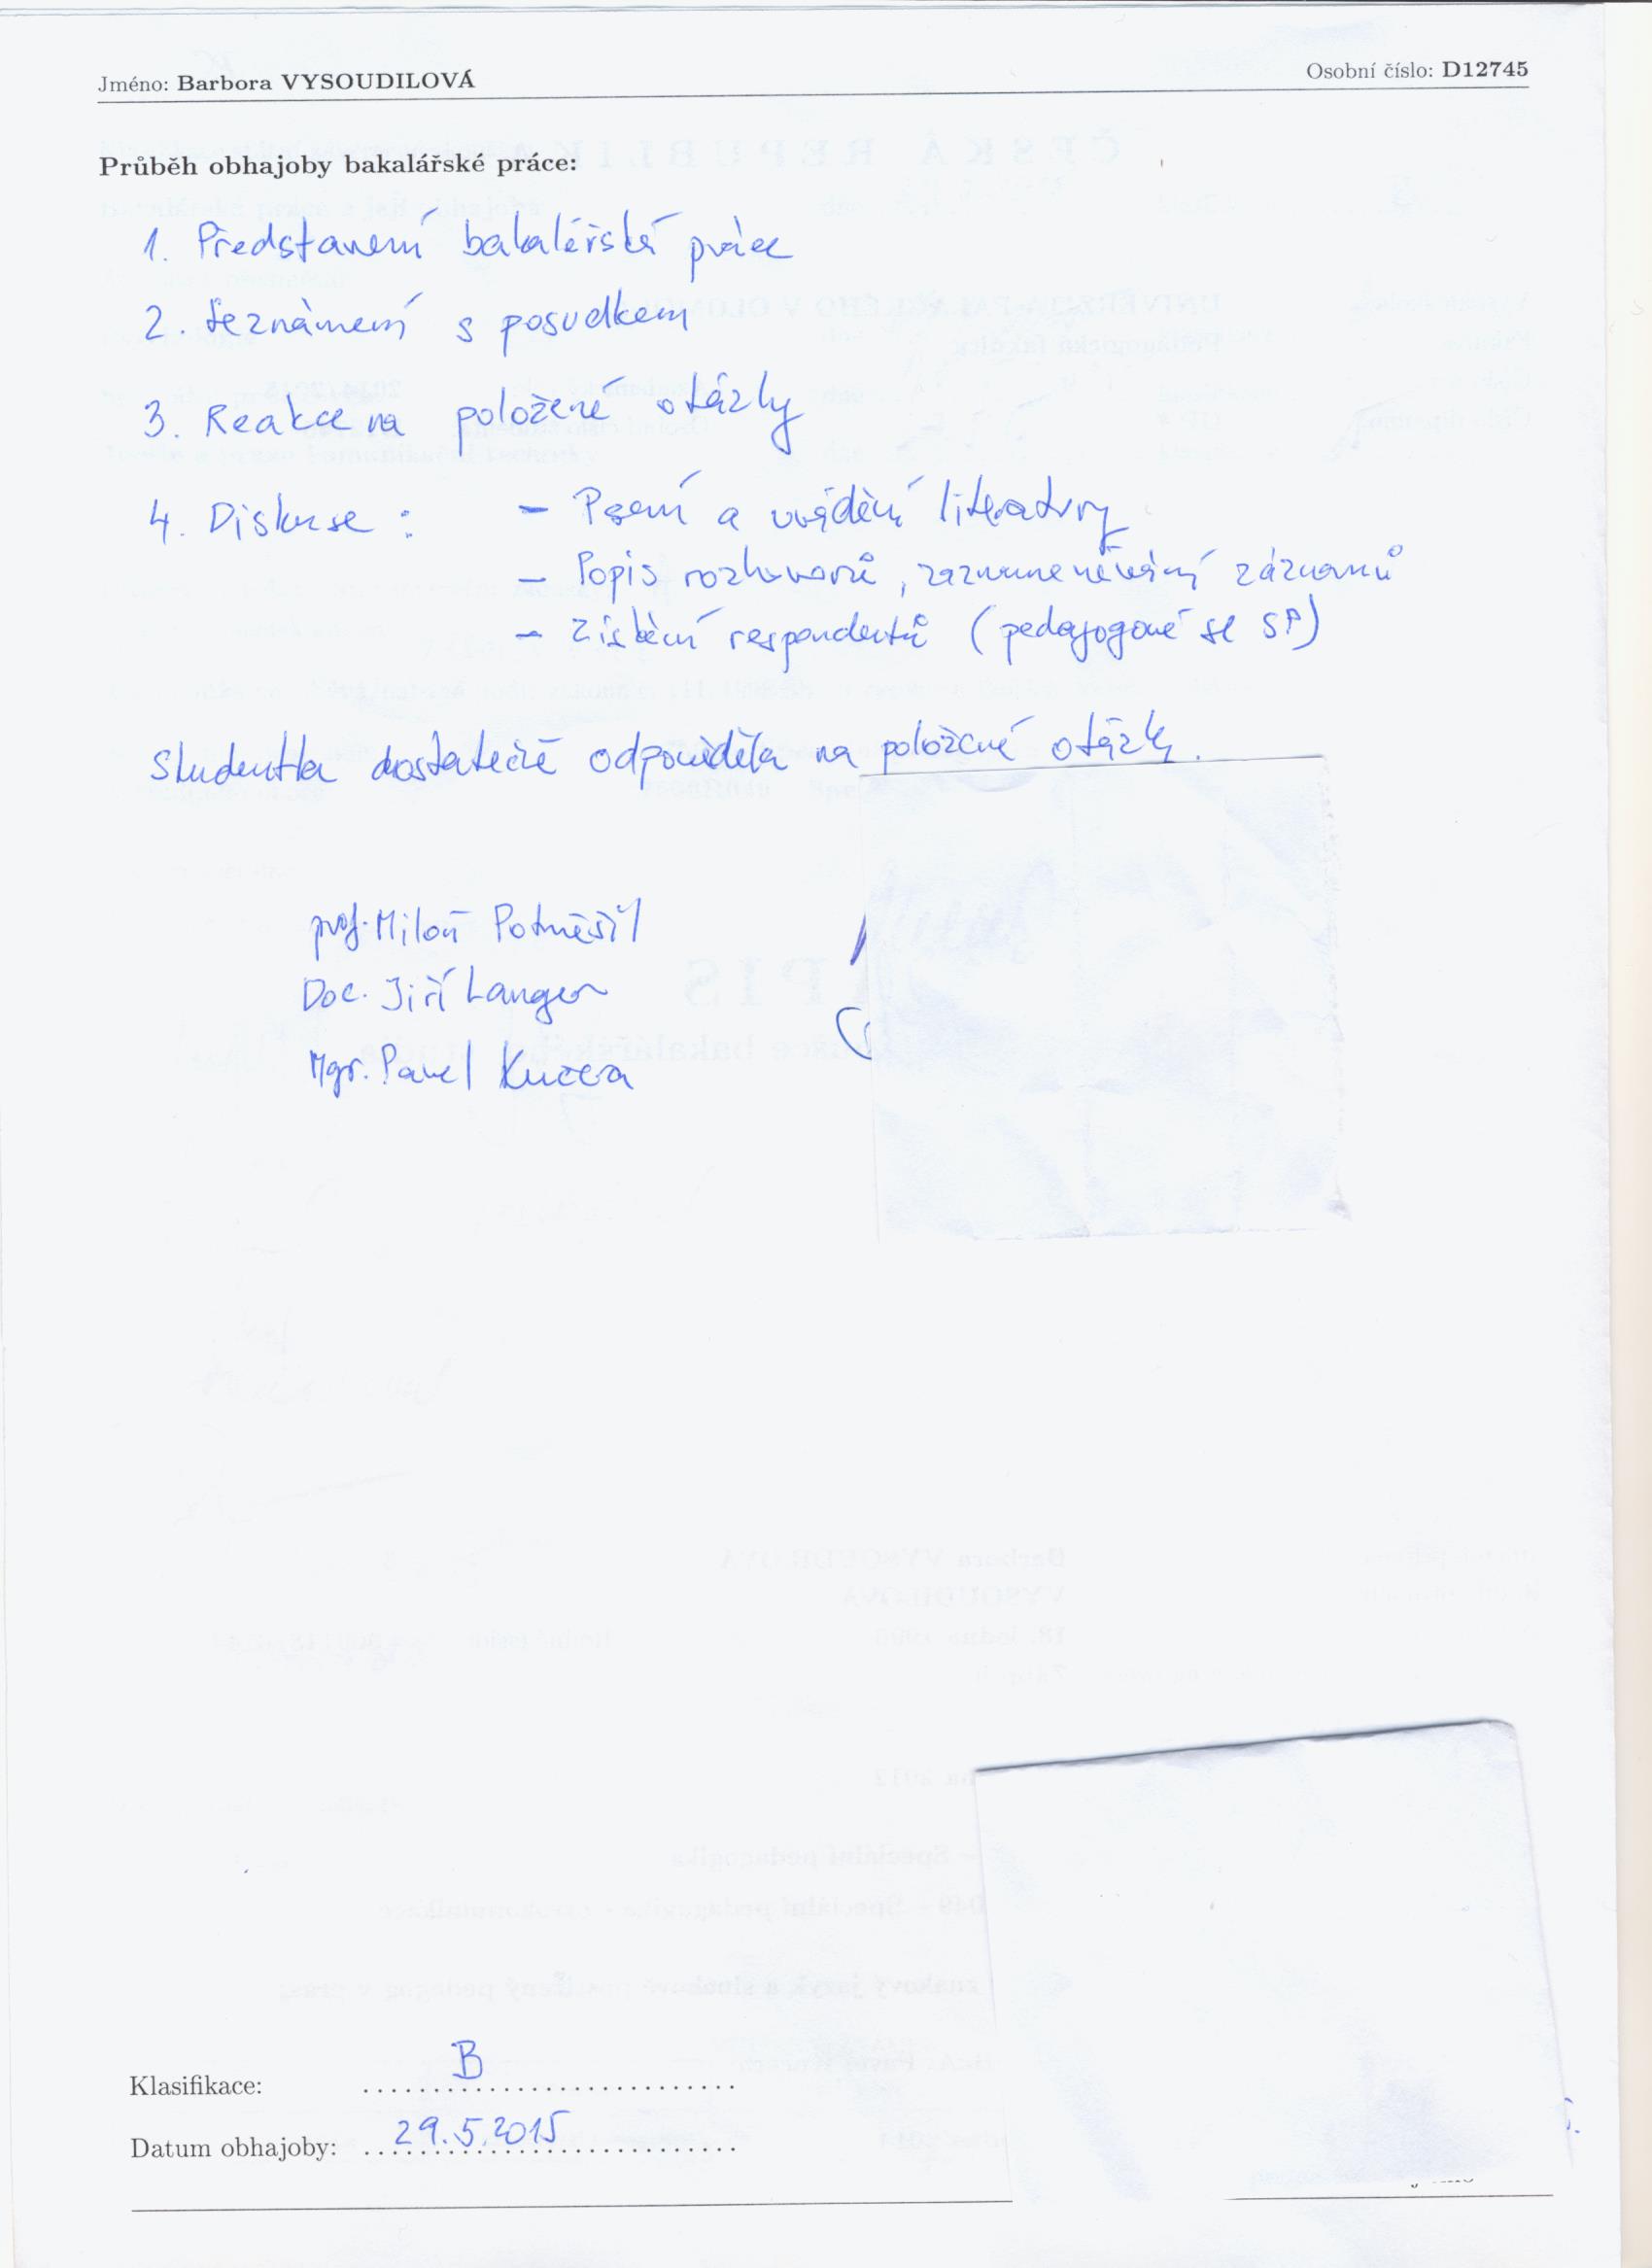 Jméno: Barbora VYSOUDILOVÁ Osobní číslo: D12745
Průběh obhajoby bakalářské práce:
1. Představení bakalářská práce
2. Seznámení s posudkem
3. Reakce na položené otázky
4. Diskuse : – Psaní a uvádění literatury
– Popis rozhovorů, zaznamenávání záznamů
– Zjištění respondentů (pedagogové se SP)
Studentka dostatečně odpověděla na položené otázky.
prof. Miloň Potměšil
Doc. Jiří Langer
Mgr. Pavel Kučera
Klasifikace: B
Datum obhajoby: 29.5.2015